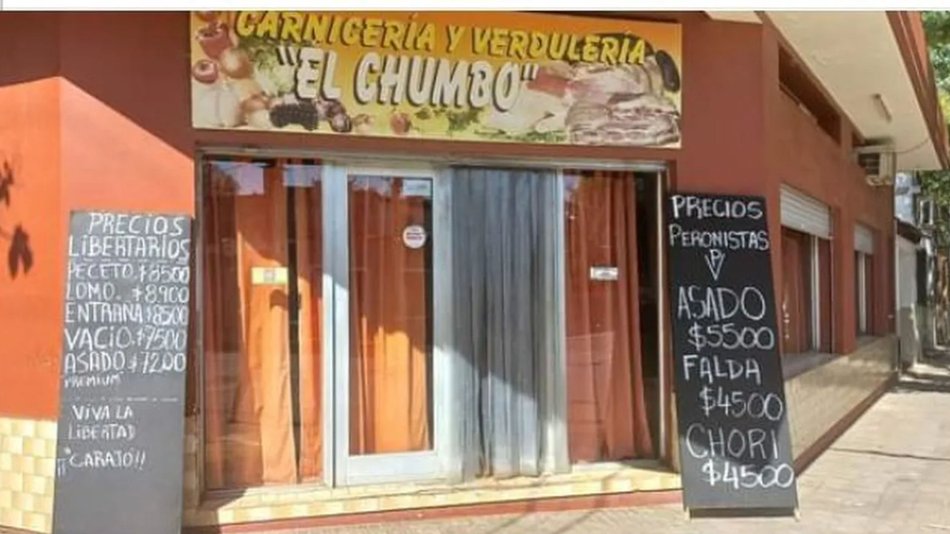 CARNICERÍA Y VERDULERÍA
"EL CHUMBO"
PRECIOS
LIBERTARIOS
PECETO. $8500
LOMO. $8900
ENTRAÑA $8500
VACIO. $7500
ASADO $7200
PREMIUM
VIVA LA
LIBERTAD
¡¡CARAJO!!
PRECIOS
PERONISTAS
ASADO
$5500
FALDA
$4500
CHORI
$4500